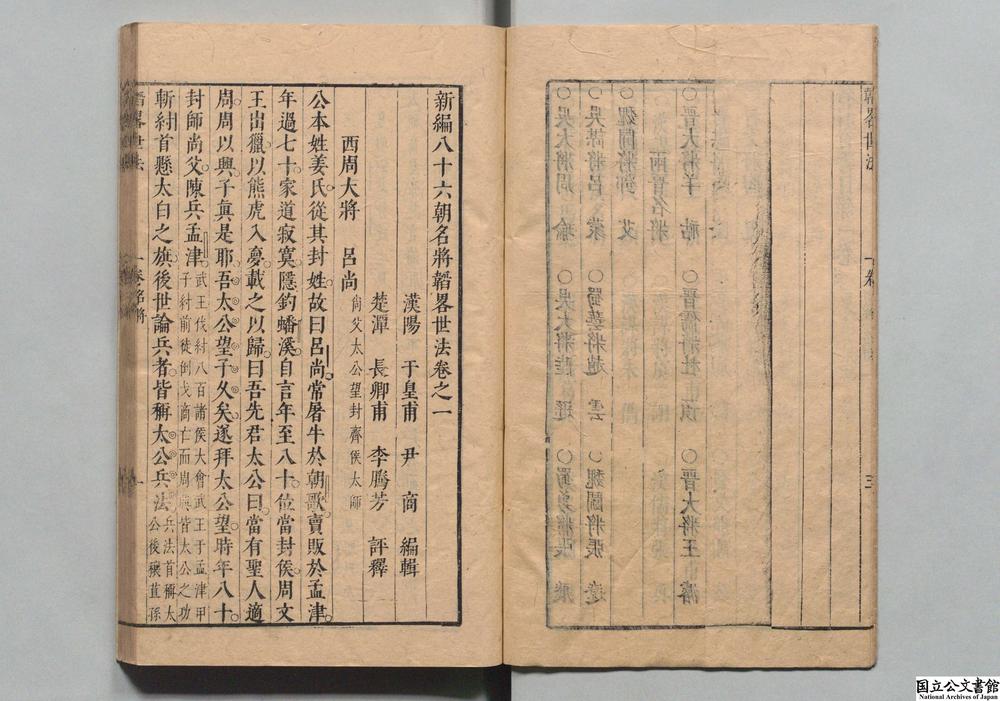 韜畧世法
一卷
三
○晉大將羊　祜　○晉儒將杜　預　○晉大將王　濬
兩晉名將
○魏閫將鄧　艾
○吳謀將呂　蒙　○蜀藝將趙　雲　○魏閫將張　遼
○吳大將周　瑜　○吳大將陸　遜　○蜀勇將張　飛
新編八十六朝名將韜畧世法卷之一
漢陽　于皇甫　尹　商　編輯
楚潭　長卿甫　李騰芳　評釋
西周大將　呂尚　尙父太公望封齊侯太師
公本姓姜氏從其封姓故曰呂尚常屠牛於朝歌賣販於孟津
年過七十家道寂寞隱釣蟠溪自言年至八十位當封侯周文
王出獵以熊虎入夢載之以歸曰吾先君太公曰當有聖人適
周周以興子真是耶吾太公望子久矣遂拜太公望時年八十
封師尚父陳兵孟津武王伐紂八百諸侯大會武王于孟津甲子紂前徒倒戈商亡而周興皆太公之功
斬紂首懸太白之旗後世論兵者皆稱太公兵法兵法首稱太公後穰苴孫
韜畧世法
一卷名將
一
国立公文書館
National Archives of Japan